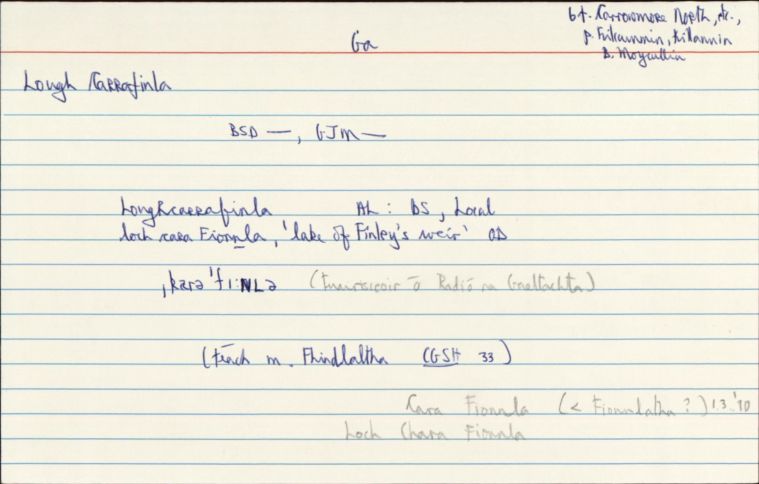 Ga
bf. Carrowmore North, etc.,
p. Killannin
B. Moycullin
Lough Carrafinla
BSD —, GJM —
Loughcarrafinla AL: BS, Local
loch cara Fionnla, 'lake of Finley's weir' OD
ˌkarə ˈfiːNLə (Tuairisceoir ó Radió na Gaeltachta)
(féach m. Fhindlaltha CGSH 33)
Cara Fionnla (< Fionnlatha?) 1.3.'90
Loch Chara Fionnla